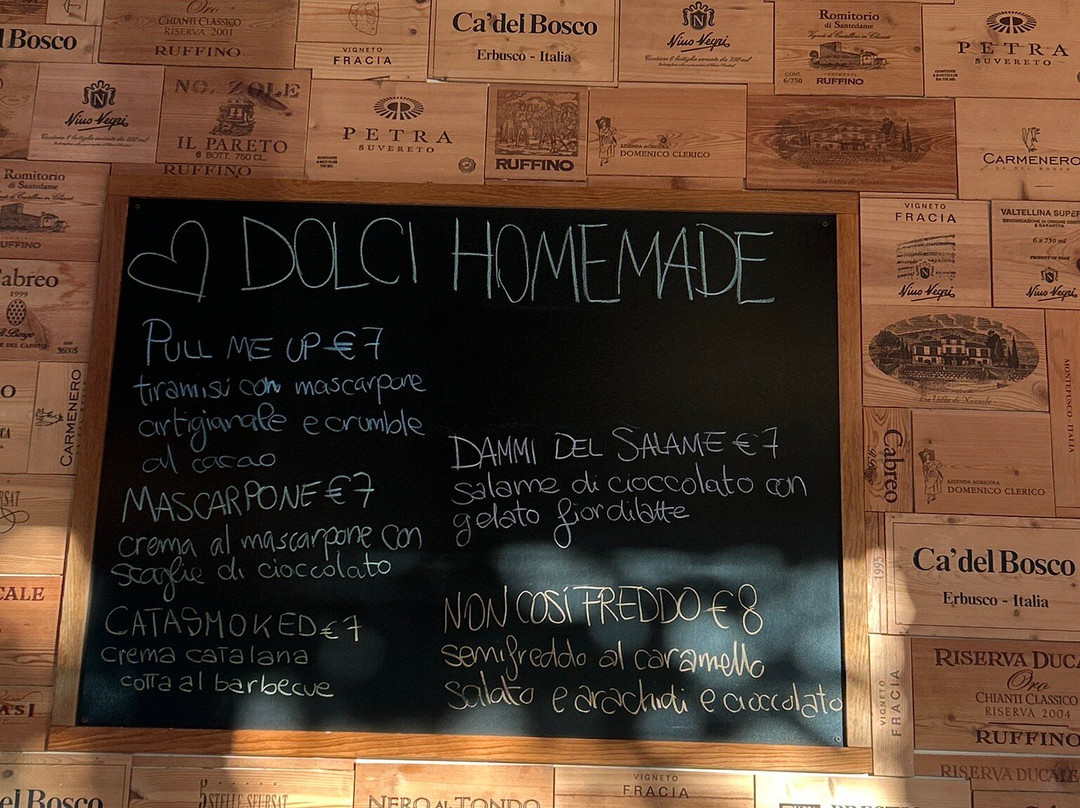 Oro
CHIANTI CLASSICO
RISERVA 2001
RUFFINO
VIGNETO
FRACIA
Ca'del Bosco
Erbusco - Italia
Nino Negri
Romitorio
di Santedame
RUFFINO
PETRA
SUVERETO
Nino Negri
NO. ZOLE
IL PARETO
6 BOTT. 750 CL.
RUFFINO
PETRA
SUVERETO
RUFFINO
AZIENDA AGRICOLA
DOMENICO CLERICO
CARMENERO
Romitorio
di Santedame
RUFFINO
1999
CARMENERO
♡ DOLCI HOMEMADE
PULL ME UP €7
tiramisi con mascarpone
artigianale e crumble
al cacao
MASCARPONE €7
crema al mascarpone con
scaglie di cioccolato
CATASMOKED €7
crema catalana
cotta al barbecue
DAMMI DEL SALAME €7
salame di cioccolato con
gelato fiordilatte
NON COSÍ FREDDO €8
semifreddo al caramello
salato e arachidi e cioccolato
VIGNETO
FRACIA
Nino Negri
VALTELLINA SUPER
6 x 750 ml
Nino Negri
La Villa di Nozzole
Cabreo
AZIENDA AGRICOLA
DOMENICO CLERICO
1995
Ca'del Bosco
Erbusco - Italia
VIGNETO
FRACIA
RISERVA DUCA
Oro
CHIANTI CLASSICO
RISERVA 2004
RUFFINO
RISERVA DUCALE
el Bosco
5 STELLE SFURSAT
NERO AL TONDO
VIGNETO
FRACIA